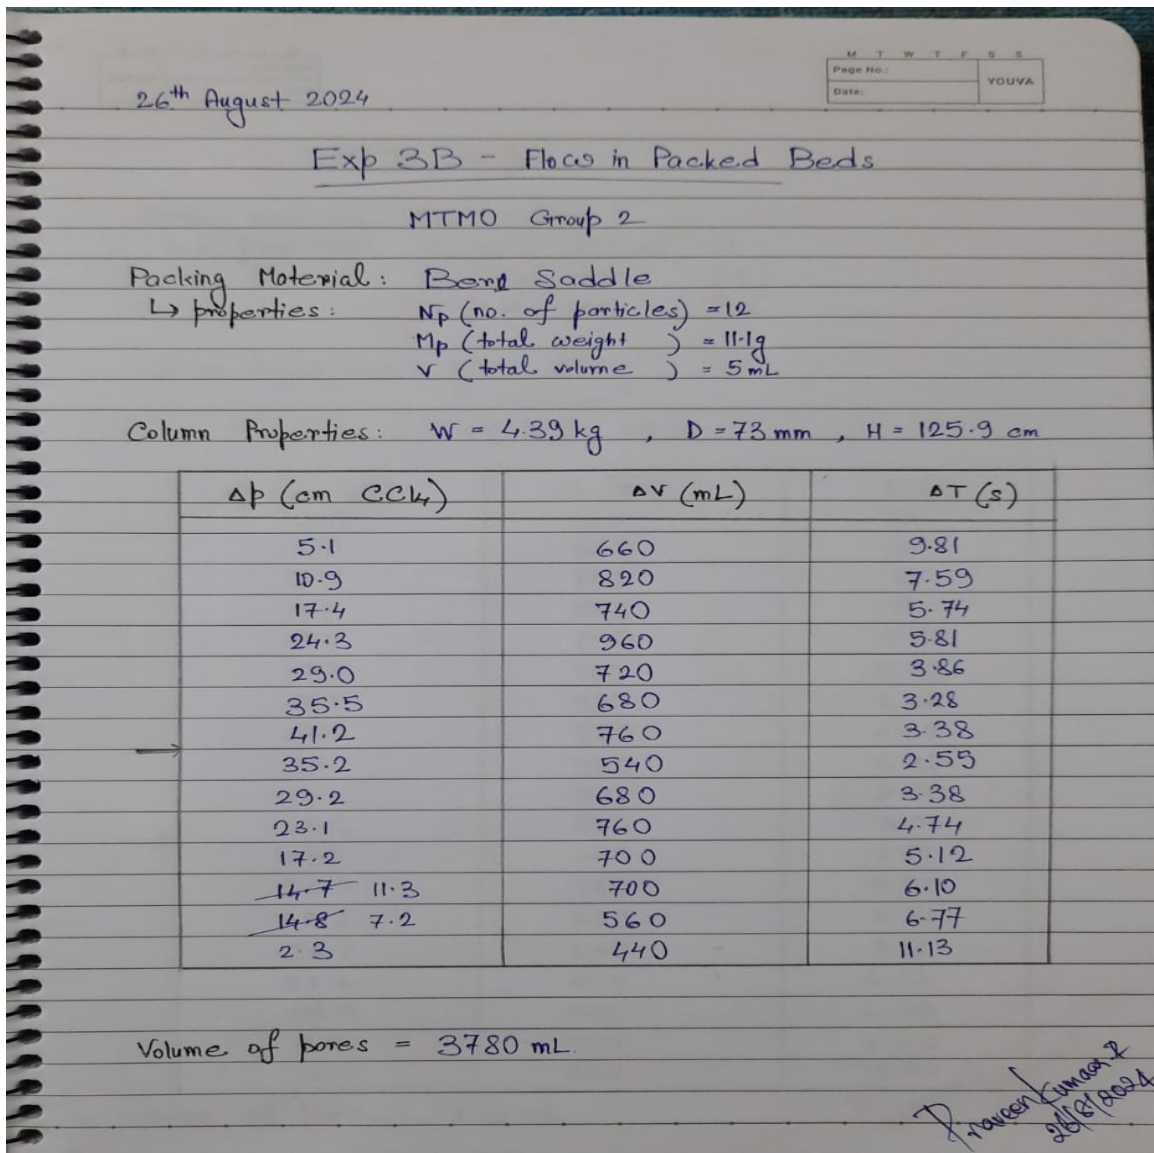 M T W T F S S
Page No.:
YOUVA
Date:
26th August 2024
Exp 3B - Flow in Packed Beds
MTMO Group 2
Packing Material: Berl Saddle
↳ properties: Np (no. of particles) = 12
Mp (total weight ) = 11.1g
V (total volume ) = 5 mL
Column Properties: W = 4.39 kg , D = 73 mm , H = 125.9 cm
Δp (cm CCl4) ΔV (mL) ΔT (s)
5.1 660 9.81
10.9 820 7.59
17.4 740 5.74
24.3 960 5.81
29.0 720 3.86
35.5 680 3.28
41.2 760 3.38
→ 35.2 540 2.55
29.2 680 3.38
23.1 760 4.74
17.2 700 5.12
14.7 11.3 700 6.10
14.8 7.2 560 6.77
2.3 440 11.13
Volume of pores = 3780 mL.
Praveen Kumaar R
26/8/2024